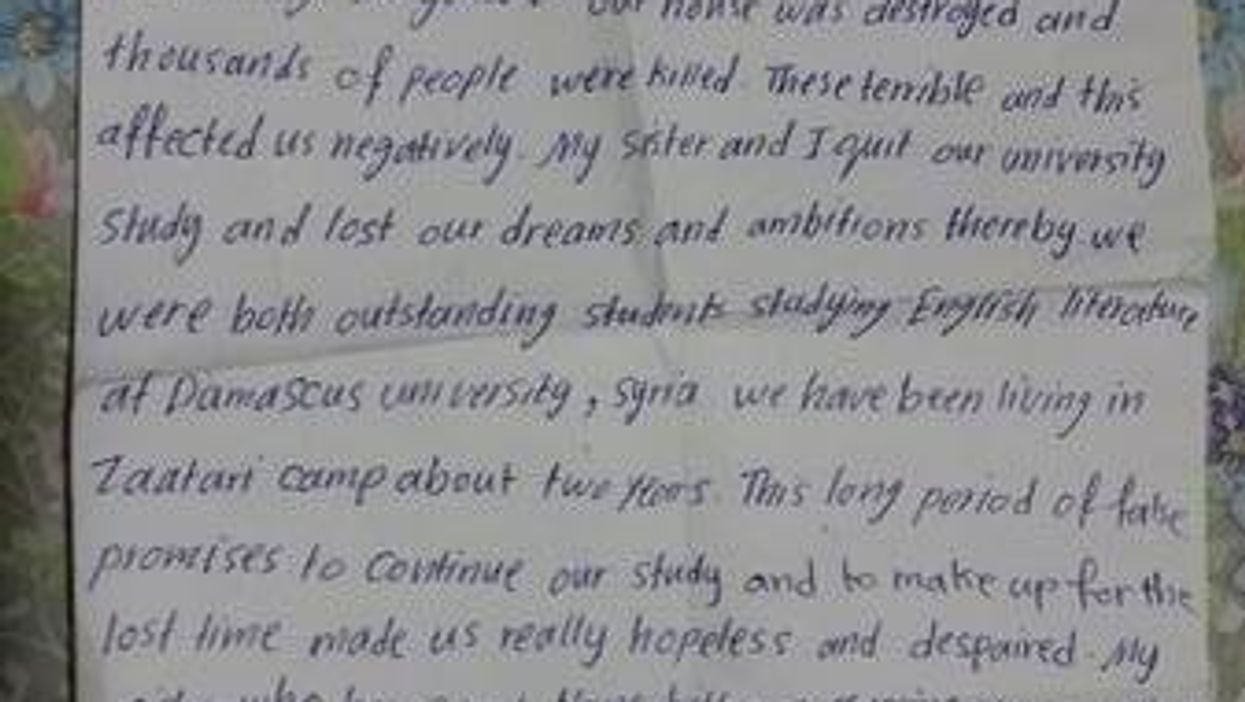 our house was destroyed and
thousands of people were killed. These terrible and this
affected us negatively. My sister and I quit our university
study and lost our dreams and ambitions thereby we
were both outstanding students studying English literature
at Damascus university, Syria we have been living in
Zaatari camp about two years. This long period of false
promises to continue our study and to make up for the
lost time made us really hopeless and despaired. My
who